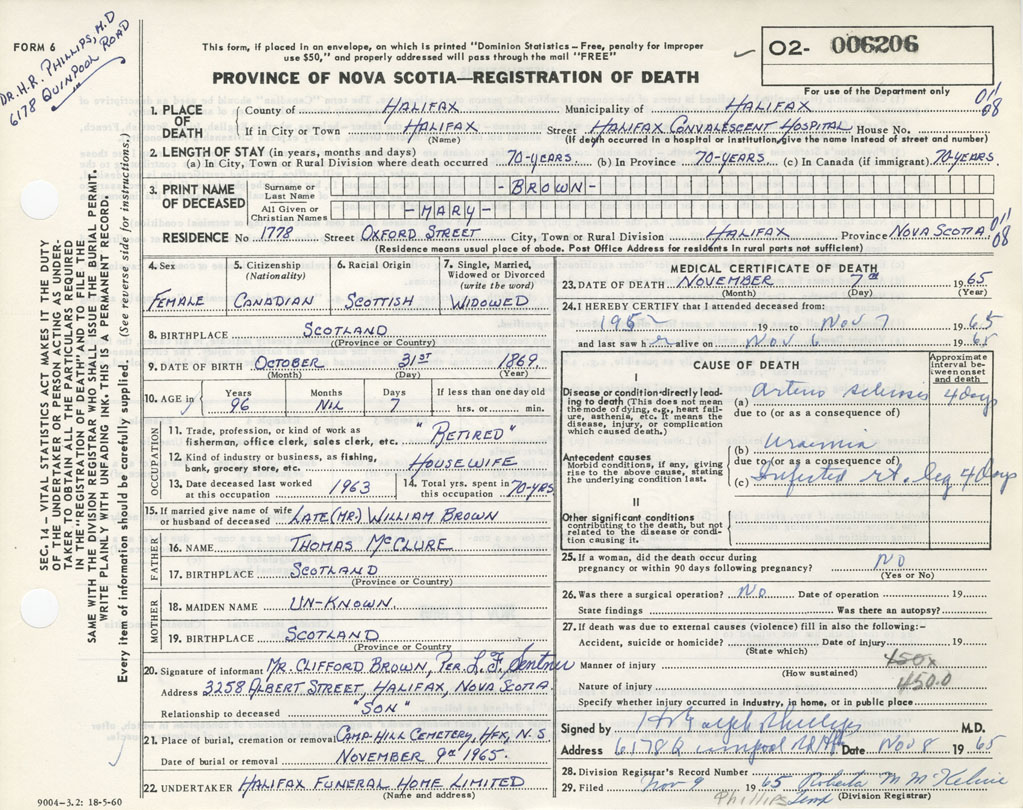 FORM 6
DR. H.R. PHILLIPS, M.D
6178 QUINPOOL ROAD
This form, if placed in an envelope, on which is printed "Dominion Statistics – Free, penalty for improper
use $50," and properly addressed will pass through the mail "FREE"
PROVINCE OF NOVA SCOTIA—REGISTRATION OF DEATH
O2- 006206
For use of the Department only
SEC. 14 – VITAL STATISTICS ACT MAKES IT THE DUTY
OF THE UNDERTAKER OR PERSON ACTING AS UNDER-
TAKER TO OBTAIN ALL THE PARTICULARS REQUIRED
IN THE "REGISTRATION OF DEATH" AND TO FILE THE
SAME WITH THE DIVISION REGISTRAR WHO SHALL ISSUE THE BURIAL PERMIT.
WRITE PLAINLY WITH UNFADING INK. THIS IS A PERMANENT RECORD.
Every item of information should be carefully supplied. (See reverse side for instructions.)
1. PLACE OF DEATH County of HALIFAX Municipality of HALIFAX 011 08
If in City or Town HALIFAX Street HALIFAX CONVALESCENT HOSPITAL House No.
(Name) (If death occurred in a hospital or institution, give the name instead of street and number)
2. LENGTH OF STAY (in years, months and days)
(a) In City, Town or Rural Division where death occurred 70-YEARS. (b) In Province 70-YEARS. (c) In Canada (if immigrant) 70-YEARS.
3. PRINT NAME OF DECEASED Surname or Last Name -BROWN-
All Given or Christian Names -MARY-
RESIDENCE No 1778 Street OXFORD STREET City, Town or Rural Division HALIFAX Province NOVA SCOTIA 011 08
(Residence means usual place of abode. Post Office Address for residents in rural parts not sufficient)
4. Sex FEMALE
5. Citizenship (Nationality) CANADIAN
6. Racial Origin SCOTTISH
7. Single, Married, Widowed or Divorced (write the word) WIDOWED
8. BIRTHPLACE SCOTLAND
(Province or Country)
9. DATE OF BIRTH OCTOBER 31ST 1869
(Month) (Day) (Year)
10. AGE in Years 96 Months NIL Days 7 If less than one day old hrs. or min.
OCCUPATION
11. Trade, profession, or kind of work as
fisherman, office clerk, sales clerk, etc. "RETIRED"
12. Kind of industry or business, as fishing,
bank, grocery store, etc. HOUSEWIFE
13. Date deceased last worked at this occupation 1963
14. Total yrs. spent in this occupation 70-YRS.
15. If married give name of wife
or husband of deceased LATE (MR.) WILLIAM BROWN
FATHER
16. NAME THOMAS MCCLURE
17. BIRTHPLACE SCOTLAND
(Province or Country)
MOTHER
18. MAIDEN NAME UN-KNOWN.
19. BIRTHPLACE SCOTLAND
(Province or Country
20. Signature of informant MR. CLIFFORD BROWN, PER. L.F. Sentner
Address 3258 ALBERT STREET, HALIFAX, NOVA SCOTIA.
Relationship to deceased "SON"
21. Place of burial, cremation or removal CAMP-HILL CEMETERY, HFX, N.S.
Date of burial or removal NOVEMBER 9th 1965.
22. UNDERTAKER HALIFAX FUNERAL HOME LIMITED
(Name and address)
9004–3.2: 18-5-60
MEDICAL CERTIFICATE OF DEATH
23. DATE OF DEATH NOVEMBER 7th 1965
(Month) (Day) (Year)
24. I HEREBY CERTIFY that I attended deceased from:
1952 19 to Nov 7 1965
and last saw her alive on Nov 6 1965
CAUSE OF DEATH
Approximate interval between onset and death
I
Disease or condition directly leading to death (This does not mean the mode of dying, e.g., heart failure, asthenia, etc. It means the disease, injury, or complication which caused death.)
(a) Arterio sclerosis 4 days
due to (or as a consequence of)
Antecedent causes
Morbid conditions, if any, giving rise to the above cause, stating the underlying condition last.
(b) Uraemia
due to (or as a consequence of)
(c) Infected rt. leg 4 days
II
Other significant conditions
contributing to the death, but not related to the disease or condition causing it.
25. If a woman, did the death occur during
pregnancy or within 90 days following pregnancy? No
(Yes or No)
26. Was there a surgical operation? No Date of operation 19
State findings Was there an autopsy?
27. If death was due to external causes (violence) fill in also the following:–
Accident, suicide or homicide? Date of injury 19
(State which)
Manner of injury 450x
(How sustained)
Nature of injury 450.0
Specify whether injury occurred in industry, in home, or in public place
Signed by H Ralph Phillips M.D.
Address 6178 Quinpool Rd Hfx Date Nov 8 1965
28. Division Registrar's Record Number
29. Filed Nov 9 1965 Roberta M McKelvie
(Division Registrar)
Phillips